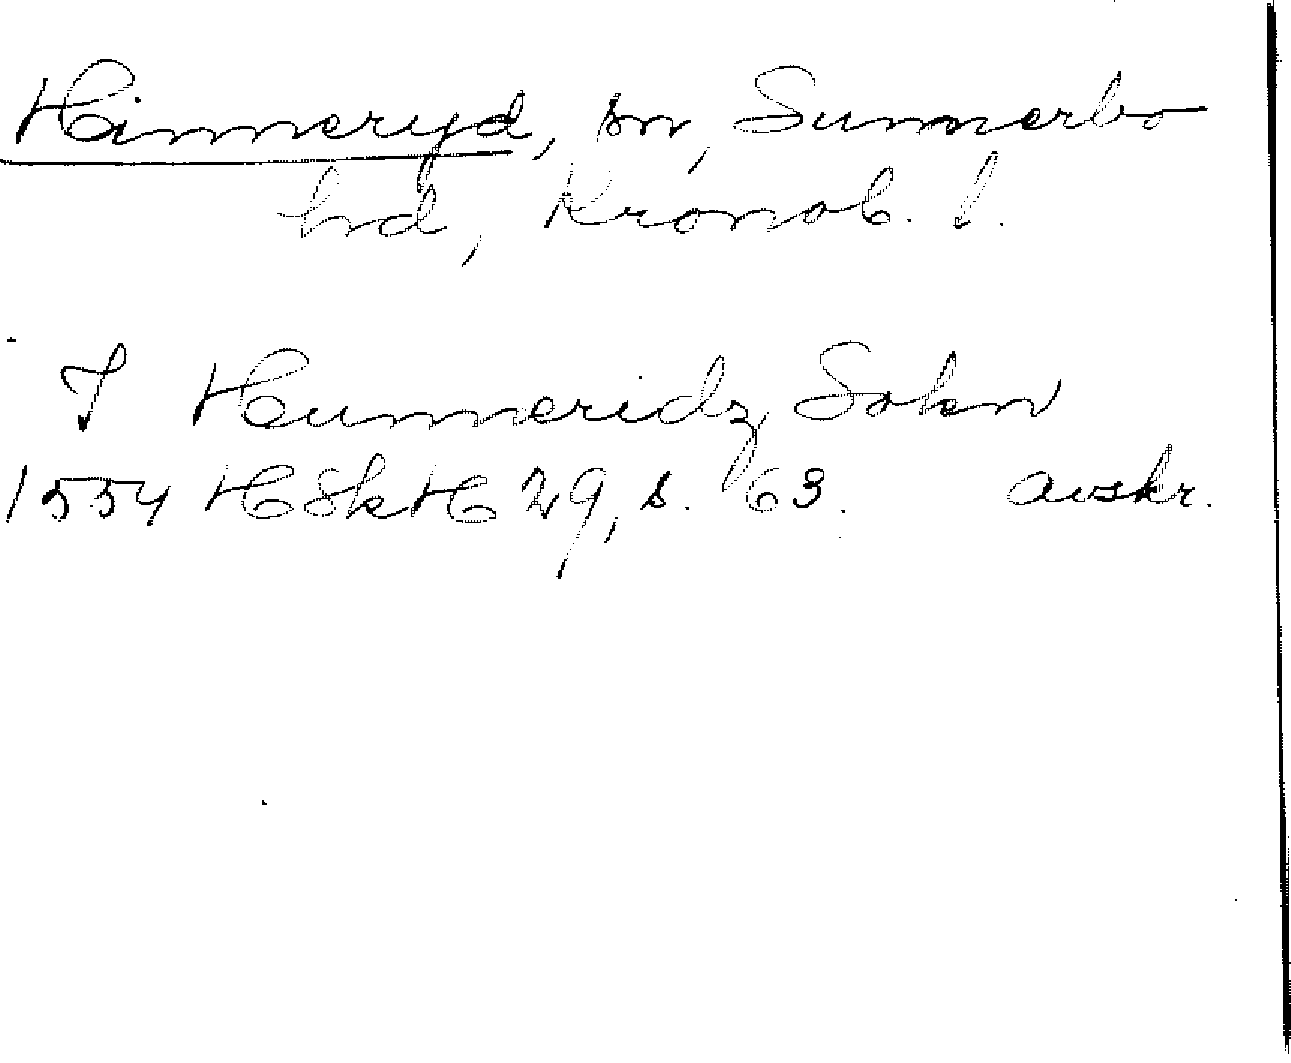 Hinneryd, sn, Sunnerbo
hd, Kronob. l.
J Hunneridz Sokn
1554 HSkH 29, s. 63. avskr.